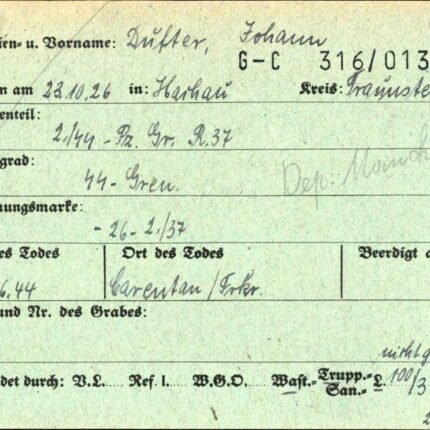 ien- u. Vorname: Dufter, Johann
G-C 316/013
n am 23.10.26 in: Haihau Kreis: Traunste
enteil:
2./44 - Pz. Gr. R. 37
grad:
44- Gren.
Dep:
nungsmarke:
- 26 - 2./37
es Todes Ort des Todes Beerdigt a
6.44 Carentan / Frkr.
und Nr. des Grabes:
det durch: V.L. Ref. I. W.G.O. Wast.- Trupp.- San.- L. 100/3